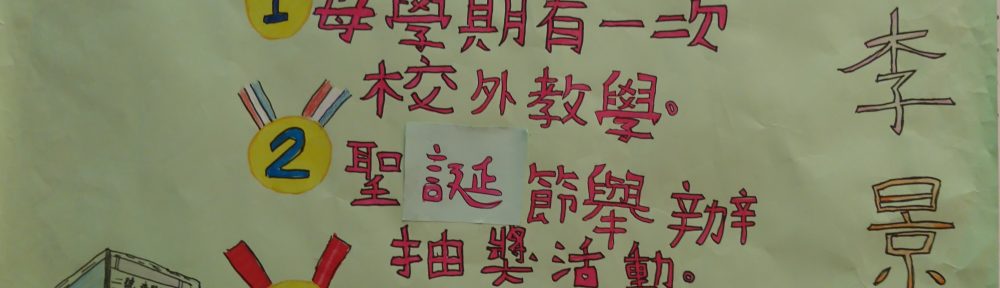 1
每學期有一次
校外教學。
2
聖誕節舉辦
抽獎活動。
李景